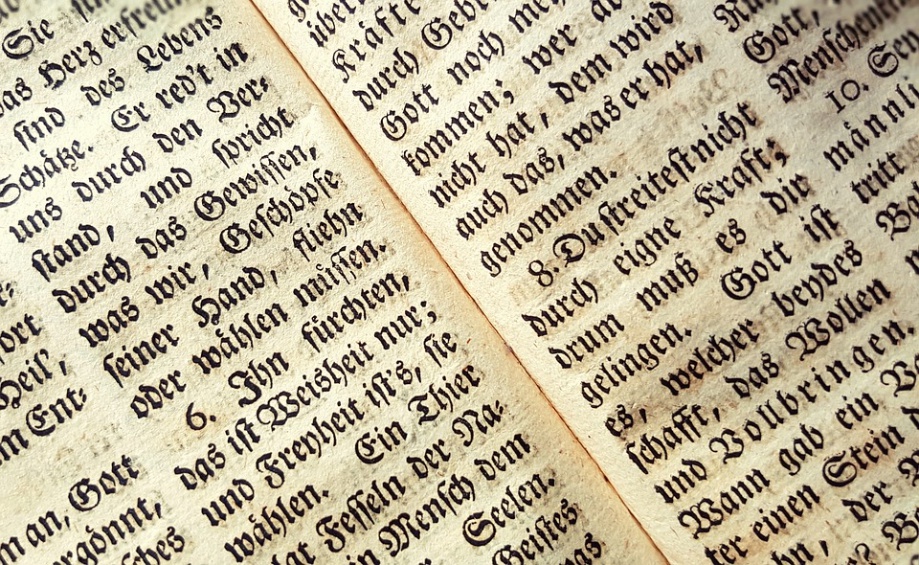 Sie
das Herz erfreu
sind des Lebens
Schätze. Er red't in
uns durch den Ver-
stand, und spricht
durch das Gewissen,
was wir, Geschöpfe
seiner Hand, fliehn
oder wählen müssen.
6. Ihn fürchten,
das ist Weisheit nur;
und Freyheit ist's, sie
wählen. Ein Thier
Fesseln der Na-
in Mensch dem
Seelen.
Geistes
ort
Heil',
m Ent-
m an, Gott
rgönnt,
ches
Kräfte
durch Geb
Gott noch
kommen; wer
nicht hat, dem wird
auch das, was er hat,
genommen.
8. Du streitest nicht
durch eigne Kraft;
drum muß es dir
gelingen. Gott ist
es, welcher beydes
schafft, das Wollen
und Vollbringen.
Wann gab ein V
ter einen Stein
hn, der
Gott,
Menschen
10.
männl
tritt